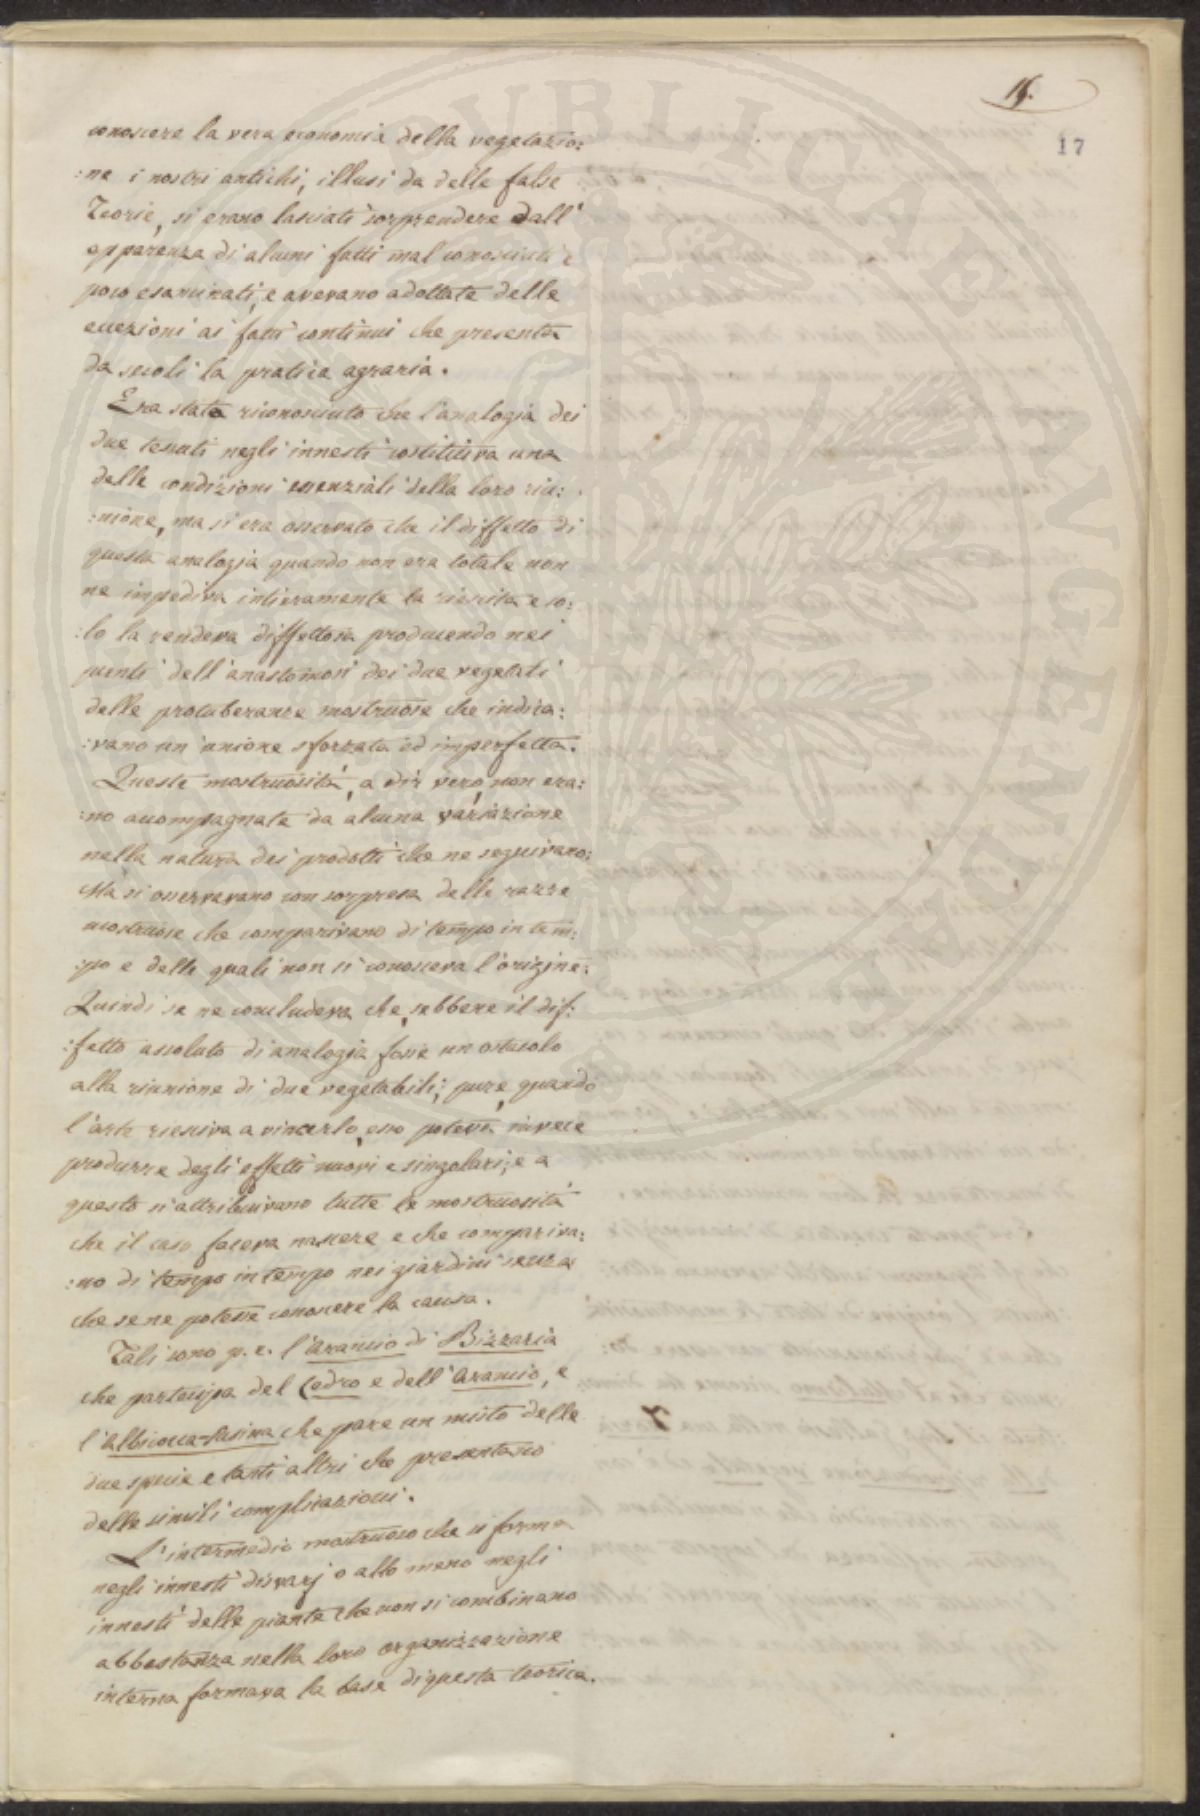 15.
17
conoscere la vera economia della vegetazio:
:ne i nostri antichi, illusi da delle false
Teorie, si erano lasciati sorprendere dall'
apparenza di alcuni fatti mal conosciuti e
poco esaminati, e avevano adottate delle
eccezioni ai fatti continui che presenta
da secoli la pratica agraria.
Era stato riconosciuto che l'analogia dei
due tessuti negli innesti costitutiva una
delle condizioni essenziali della loro riu:
:nione, ma si era osservato che il diffetto di
questa analogia quando non era totale non
ne impediva intieramente la riescita e so:
:lo la rendeva diffettosa producendo nei
punti dell'anastomosi dei due vegetali
delle protuberanze mostruose che indica:
:vano un'unione sforzata ed imperfetta.
Queste mostruosità, a dir vero, non era:
:no accompagnate da alcuna variazione
nella natura dei prodotti che ne seguivano;
Ma si osservavano con sorpresa delle razze
mostruose che comparivano di tempo in tem:
:po e delle quali non si conosceva l'origine.
Quindi se ne concludeva che, sebbene il dif:
:fetto assoluto di analogia fosse un ostacolo
alla riunione di due vegetabili; pure, quando
l'arte riesciva a vincerlo, esso poteva invece
produrre degli effetti nuovi e singolari; e a
questo si attribuivano tutte le mostruosità
che il caso faceva nascere e che compariva:
:no di tempo in tempo nei giardini senza
che se ne potesse conoscere la causa.
Tali sono p. e. l'Arancio di Bizzaria
che partecipa del Cedro e dell'Arancio, e
l'Albicocca-Susina che pare un misto delle
due specie e tanti altri che presentano
delle simili complicazioni.
L'intermedio mostruoso che si forma
negli innesti disvarj o allo meno negli
innesti delle piante che non si combinano
abbastanza nella loro organizzazione
interna formava la base di questa teorica.
PUBLICAE